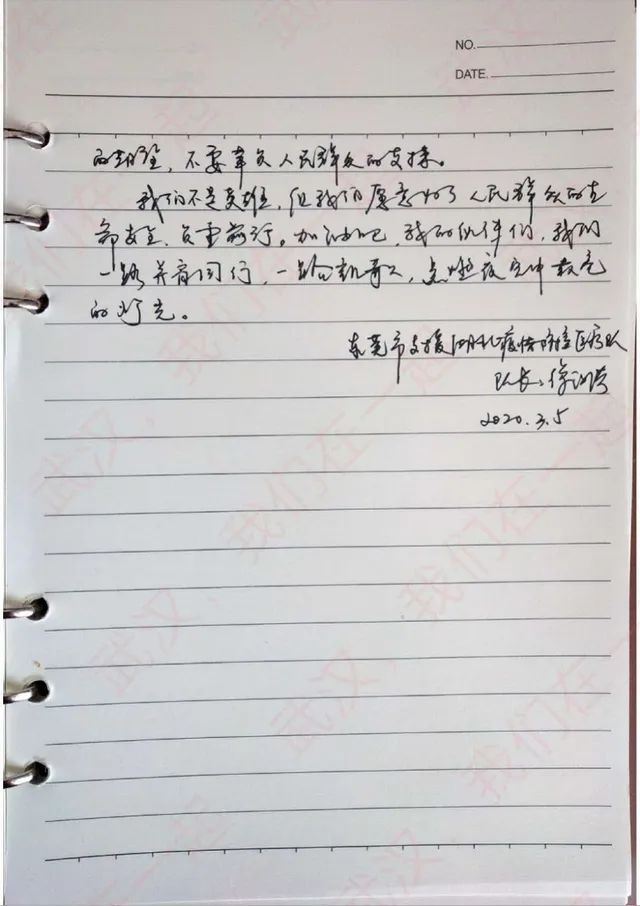 NO.
DATE.
的期望，不要辜负人民群众的支持。
我们不是英雄，但我们愿意为了人民群众的生
命安全，负重前行。加油吧，我的伙伴们，我们
一路并肩同行，一路高歌，点燃夜空中最亮
的灯光。
东莞市支援湖北疫情防控医疗队
队长：徐
2020.3.5
武汉，我们在一起
武汉，我们在一起
武汉，我们在一起
武汉，我们在一起